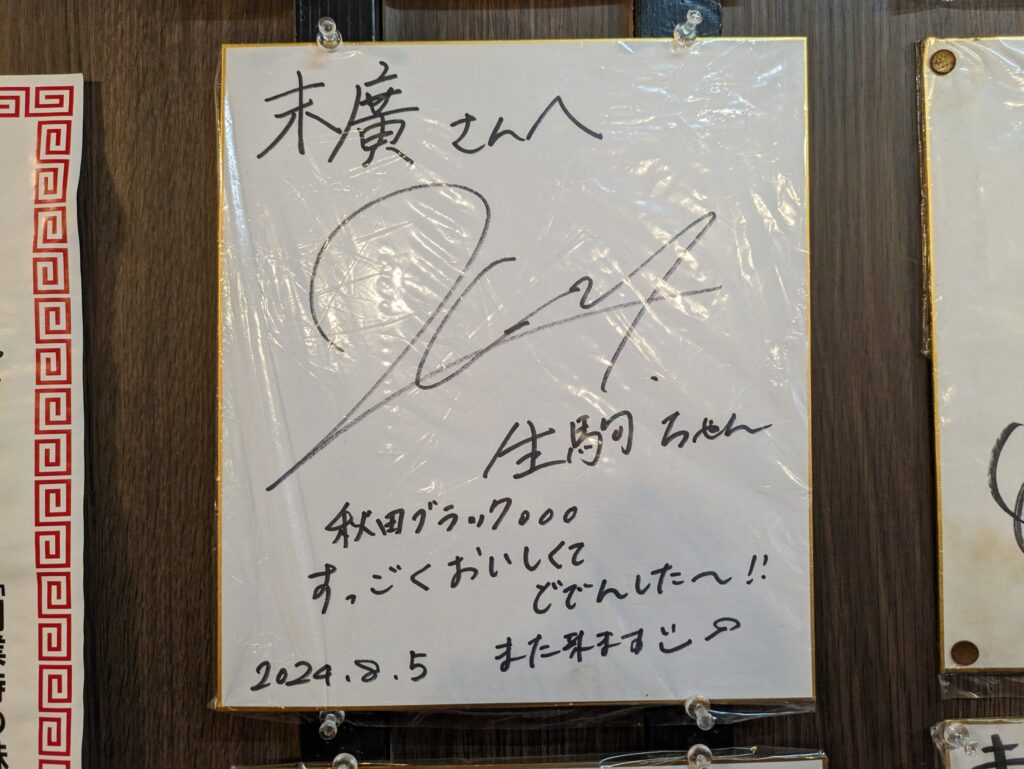 末廣さんへ
生駒ちゃん
秋田ブラック。。。
すっごくおいしくて
どでんしたへ!!
また来ます
2024.8.5